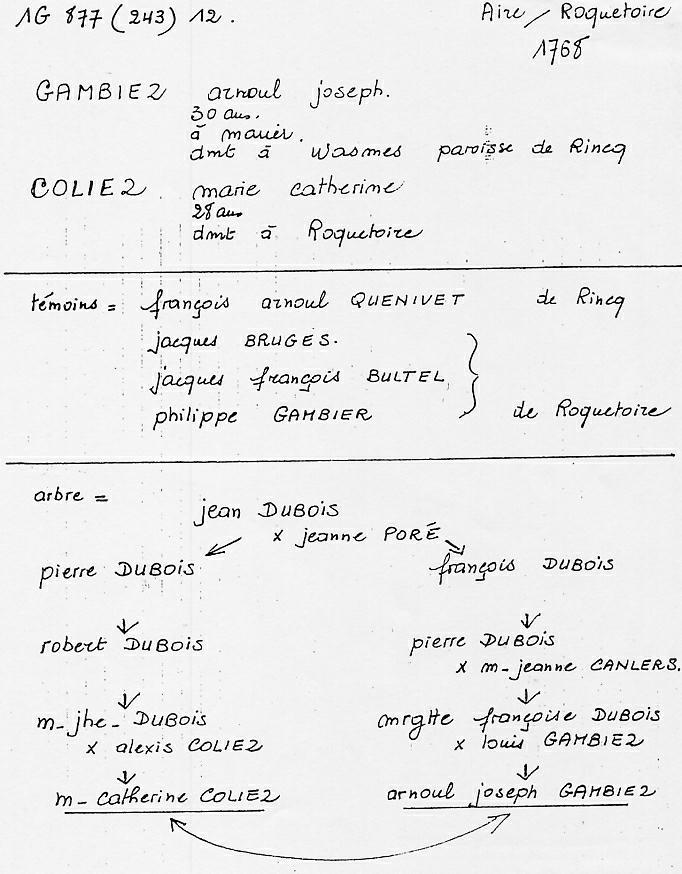 1G 877 (243) 12.
Aire / Roquetoire
1768
GAMBIEZ arnoul joseph.
30 ans.
à marier.
dmt à Wasmes paroisse de Rincq
COLIEZ marie catherine
28 ans
dmt à Roquetoire
témoins = françois arnoul QUENIVET de Rincq
jacques BRUGES.
jacques françois BULTEL
philippe GAMBIER } de Roquetoire
arbre =
jean DUBOIS
x jeanne PORÉ
pierre DUBOIS françois DUBOIS
robert DUBOIS pierre DUBOIS
x m-jeanne CANLERS.
m-jhe- DUBOIS mrgtte françoise DUBOIS
x alexis COLIEZ x louis GAMBIEZ
m-catherine COLIEZ arnoul joseph GAMBIEZ